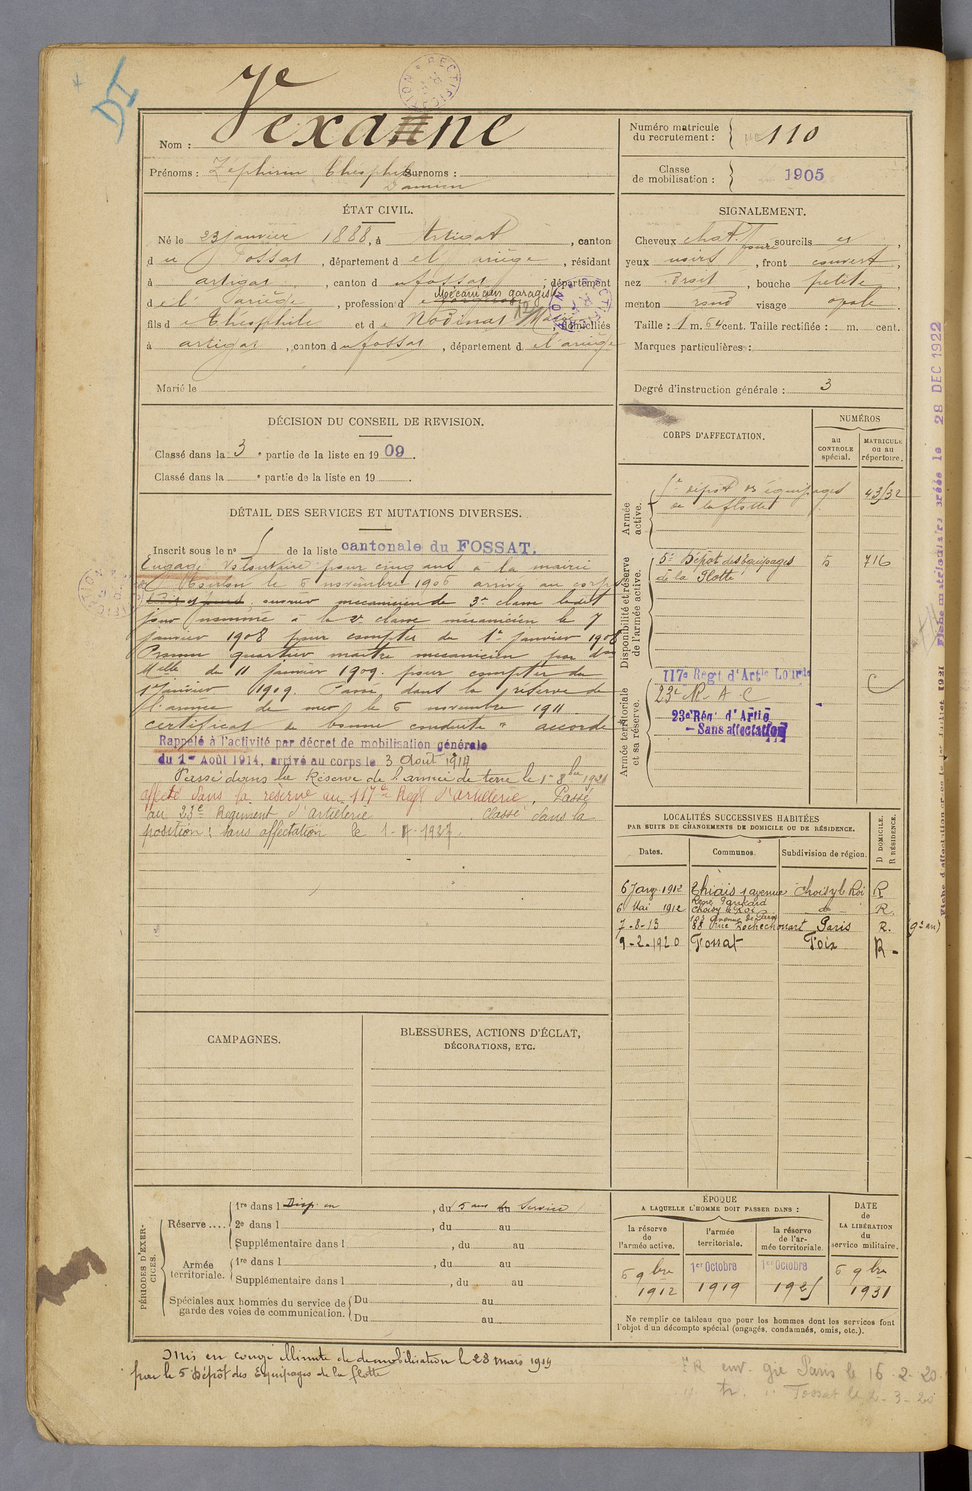 DI
Vexanne
Nom :
Numéro matricule
du recrutement : 110
Prénoms : Zephirin Théophile Surnoms :
Damien
Classe
de mobilisation : 1905
ÉTAT CIVIL.
Né le 23 janvier 1888, à Artigat, canton
du Fossat, département de l'ariège, résidant
à artigat, canton du fossat, département
Mécanicien garagiste
de l'ariège, profession d
fils de Théophile et de Rodinat Marie domiciliés
à artigat, canton du fossat, département de l'ariège
Marié le
SIGNALEMENT.
Cheveux chat. foncé sourcils id,
yeux noirs, front couvert,
nez Droit, bouche petite,
menton rond visage ovale
Taille : 1 m. 64 cent. Taille rectifiée : m. cent.
Marques particulières :
Degré d'instruction générale : 3
DÉCISION DU CONSEIL DE REVISION.
Classé dans la 3e partie de la liste en 1909
Classé dans la e partie de la liste en 19 .
DÉTAIL DES SERVICES ET MUTATIONS DIVERSES.
Inscrit sous le n° de la liste cantonale du FOSSAT.
Engagé Volontaire pour cinq ans à la mairie
de Toulon le 6 novembre 1906 arrivé au corps
ouvrier mécanicien de 3e classe le dit
jour nommé à la 2e classe mécanicien le 7
janvier 1908 pour compter du 1er janvier 1908
Promu quartier maître mécanicien par don
Melle du 11 janvier 1909. pour compter du
1er janvier 1909. Passé dans la réserve de
l'armée de mer le 6 novembre 1911
certificat de bonne conduite "accordé"
Rappelé à l'activité par décret de mobilisation générale
du 1er Août 1914, arrivé au corps le 3 Août 1914
Passé dans la Réserve de l'armée de terre le 1er 8bre 1921
affecté dans sa réserve au 117e Regt d'artillerie. Passé
au 23e Régiment d'artillerie. Classé dans la
position : sans affectation le 1-
CORPS D'AFFECTATION.
NUMÉROS
AU CONTROLE spécial.
MATRICULE ou au répertoire.
Armée active.
1er dépôt des équipages 43/32
de la flotte
Disponibilité et réserve de l'armée active.
5e Dépôt des Équipages 5 716
de la Flotte
Armée territoriale et sa réserve.
117e Régt d'Artie Lourde
23e R. A. C
23e Rég. d'Artie
— Sans affectation
28 DEC 1922
LOCALITÉS SUCCESSIVES HABITÉES
PAR SUITE DE CHANGEMENTS DE DOMICILE OU DE RÉSIDENCE.
Dates. Communes. Subdivision de région. D DOMICILE. R RÉSIDENCE.
6 Janv. 1912 Thiais 1 avenue Choisy le Roi R
René Panhard
6 Mai 1912 Choisy le Roi do R.
101 avenue de Paris
7-8-13 58 Rue Rochechouart Paris R. (9e arr)
9-2-1920 Fossat Foix R.
CAMPAGNES.
BLESSURES, ACTIONS D'ÉCLAT,
DÉCORATIONS, ETC.
PÉRIODES D'EXERCICES.
Réserve....
1re dans l Disp. en, du (5 ans de Service)
2e dans l , du au
Supplémentaire dans l , du au
Armée territoriale.
1re dans l , du au
Supplémentaire dans l , du au
Spéciales aux hommes du service de garde des voies de communication.
Du au
Du au
ÉPOQUE
A LAQUELLE L'HOMME DOIT PASSER DANS :
la réserve de l'armée active.
l'armée territoriale.
la réserve de l'armée territoriale.
DATE de LA LIBÉRATION du service militaire.
6 9bre 1912
1er Octobre 1919
1er Octobre 1925
6 9bre 1931
Ne remplir ce tableau que pour les hommes dont les services font
l'objet d'un décompte spécial (engagés, condamnés, omis, etc.).
Mis en congé illimité de démobilisation le 28 mars 1919
par le 5 Dépôt des Équipages de la flotte
FR env. gie Paris le 16.2.20
Fossat le 2-3-20